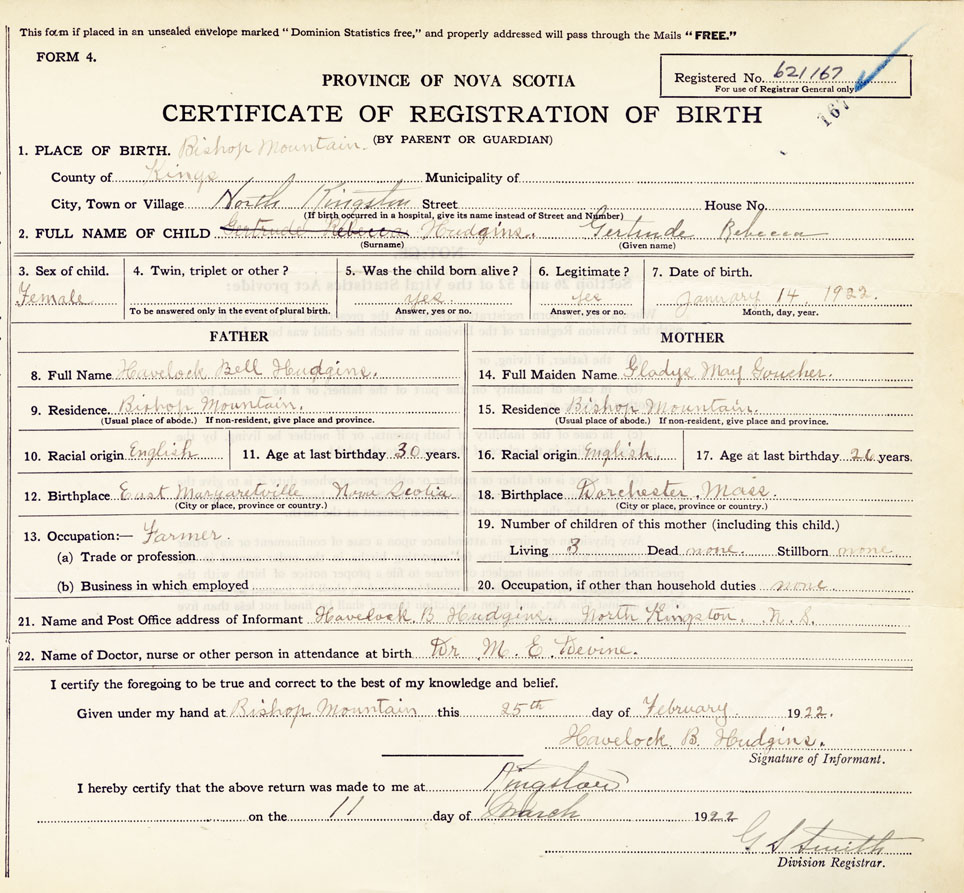 This form if placed in an unsealed envelope marked "Dominion Statistics free," and properly addressed will pass through the Mails "FREE."
FORM 4.
Registered No. 621167
For use of Registrar General only
167
PROVINCE OF NOVA SCOTIA
CERTIFICATE OF REGISTRATION OF BIRTH
(BY PARENT OR GUARDIAN)
1. PLACE OF BIRTH. Bishop Mountain.
County of Kings Municipality of
City, Town or Village North Kingston Street House No.
(If birth occurred in a hospital, give its name instead of Street and Number)
2. FULL NAME OF CHILD Gertrude Rebecca Hudgins. Gertrude Rebecca
(Surname) (Given name)
3. Sex of child. 4. Twin, triplet or other? 5. Was the child born alive? 6. Legitimate? 7. Date of birth.
Female yes. yes January 14, 1922.
To be answered only in the event of plural birth. Answer, yes or no. Answer, yes or no. Month, day, year.
FATHER
8. Full Name Havelock Bell Hudgins.
9. Residence. Bishop Mountain.
(Usual place of abode.) If non-resident, give place and province.
10. Racial origin English 11. Age at last birthday 30 years.
12. Birthplace East Margaretville Nova Scotia
(City or place, province or country.)
13. Occupation:— Farmer.
(a) Trade or profession
(b) Business in which employed
MOTHER
14. Full Maiden Name Gladys May Goucher.
15. Residence Bishop Mountain.
(Usual place of abode.) If non-resident, give place and province.
16. Racial origin English. 17. Age at last birthday 26 years.
18. Birthplace Dorchester, Mass.
(City or place, province or country.)
19. Number of children of this mother (including this child.)
Living 3 Dead none. Stillborn none
20. Occupation, if other than household duties none.
21. Name and Post Office address of Informant Havelock B. Hudgins. North Kingston, N. S.
22. Name of Doctor, nurse or other person in attendance at birth Dr M. E. Devine.
I certify the foregoing to be true and correct to the best of my knowledge and belief.
Given under my hand at Bishop Mountain this 25th day of February. 1922.
Havelock B. Hudgins.
Signature of Informant.
I hereby certify that the above return was made to me at Kingston
on the 11 day of March 1922
G S Smith
Division Registrar.